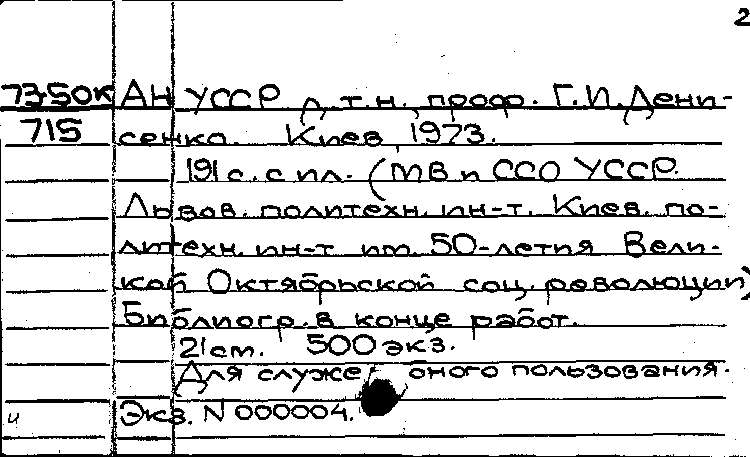 2
7350к АН УССР д.т.н., проф. Г.И.Дени-
715 сенко. Киев, 1973.
191 с. с ил. (МВ и ССО УССР.
Львов. политехн. ин-т. Киев. по-
литехн. ин-т им. 50-летия Вели-
кой Октябрьской соц. революции)
Библиогр. в конце работ.
21 см. 500 экз.
Для служебного пользования.
и Экз. N 000004.